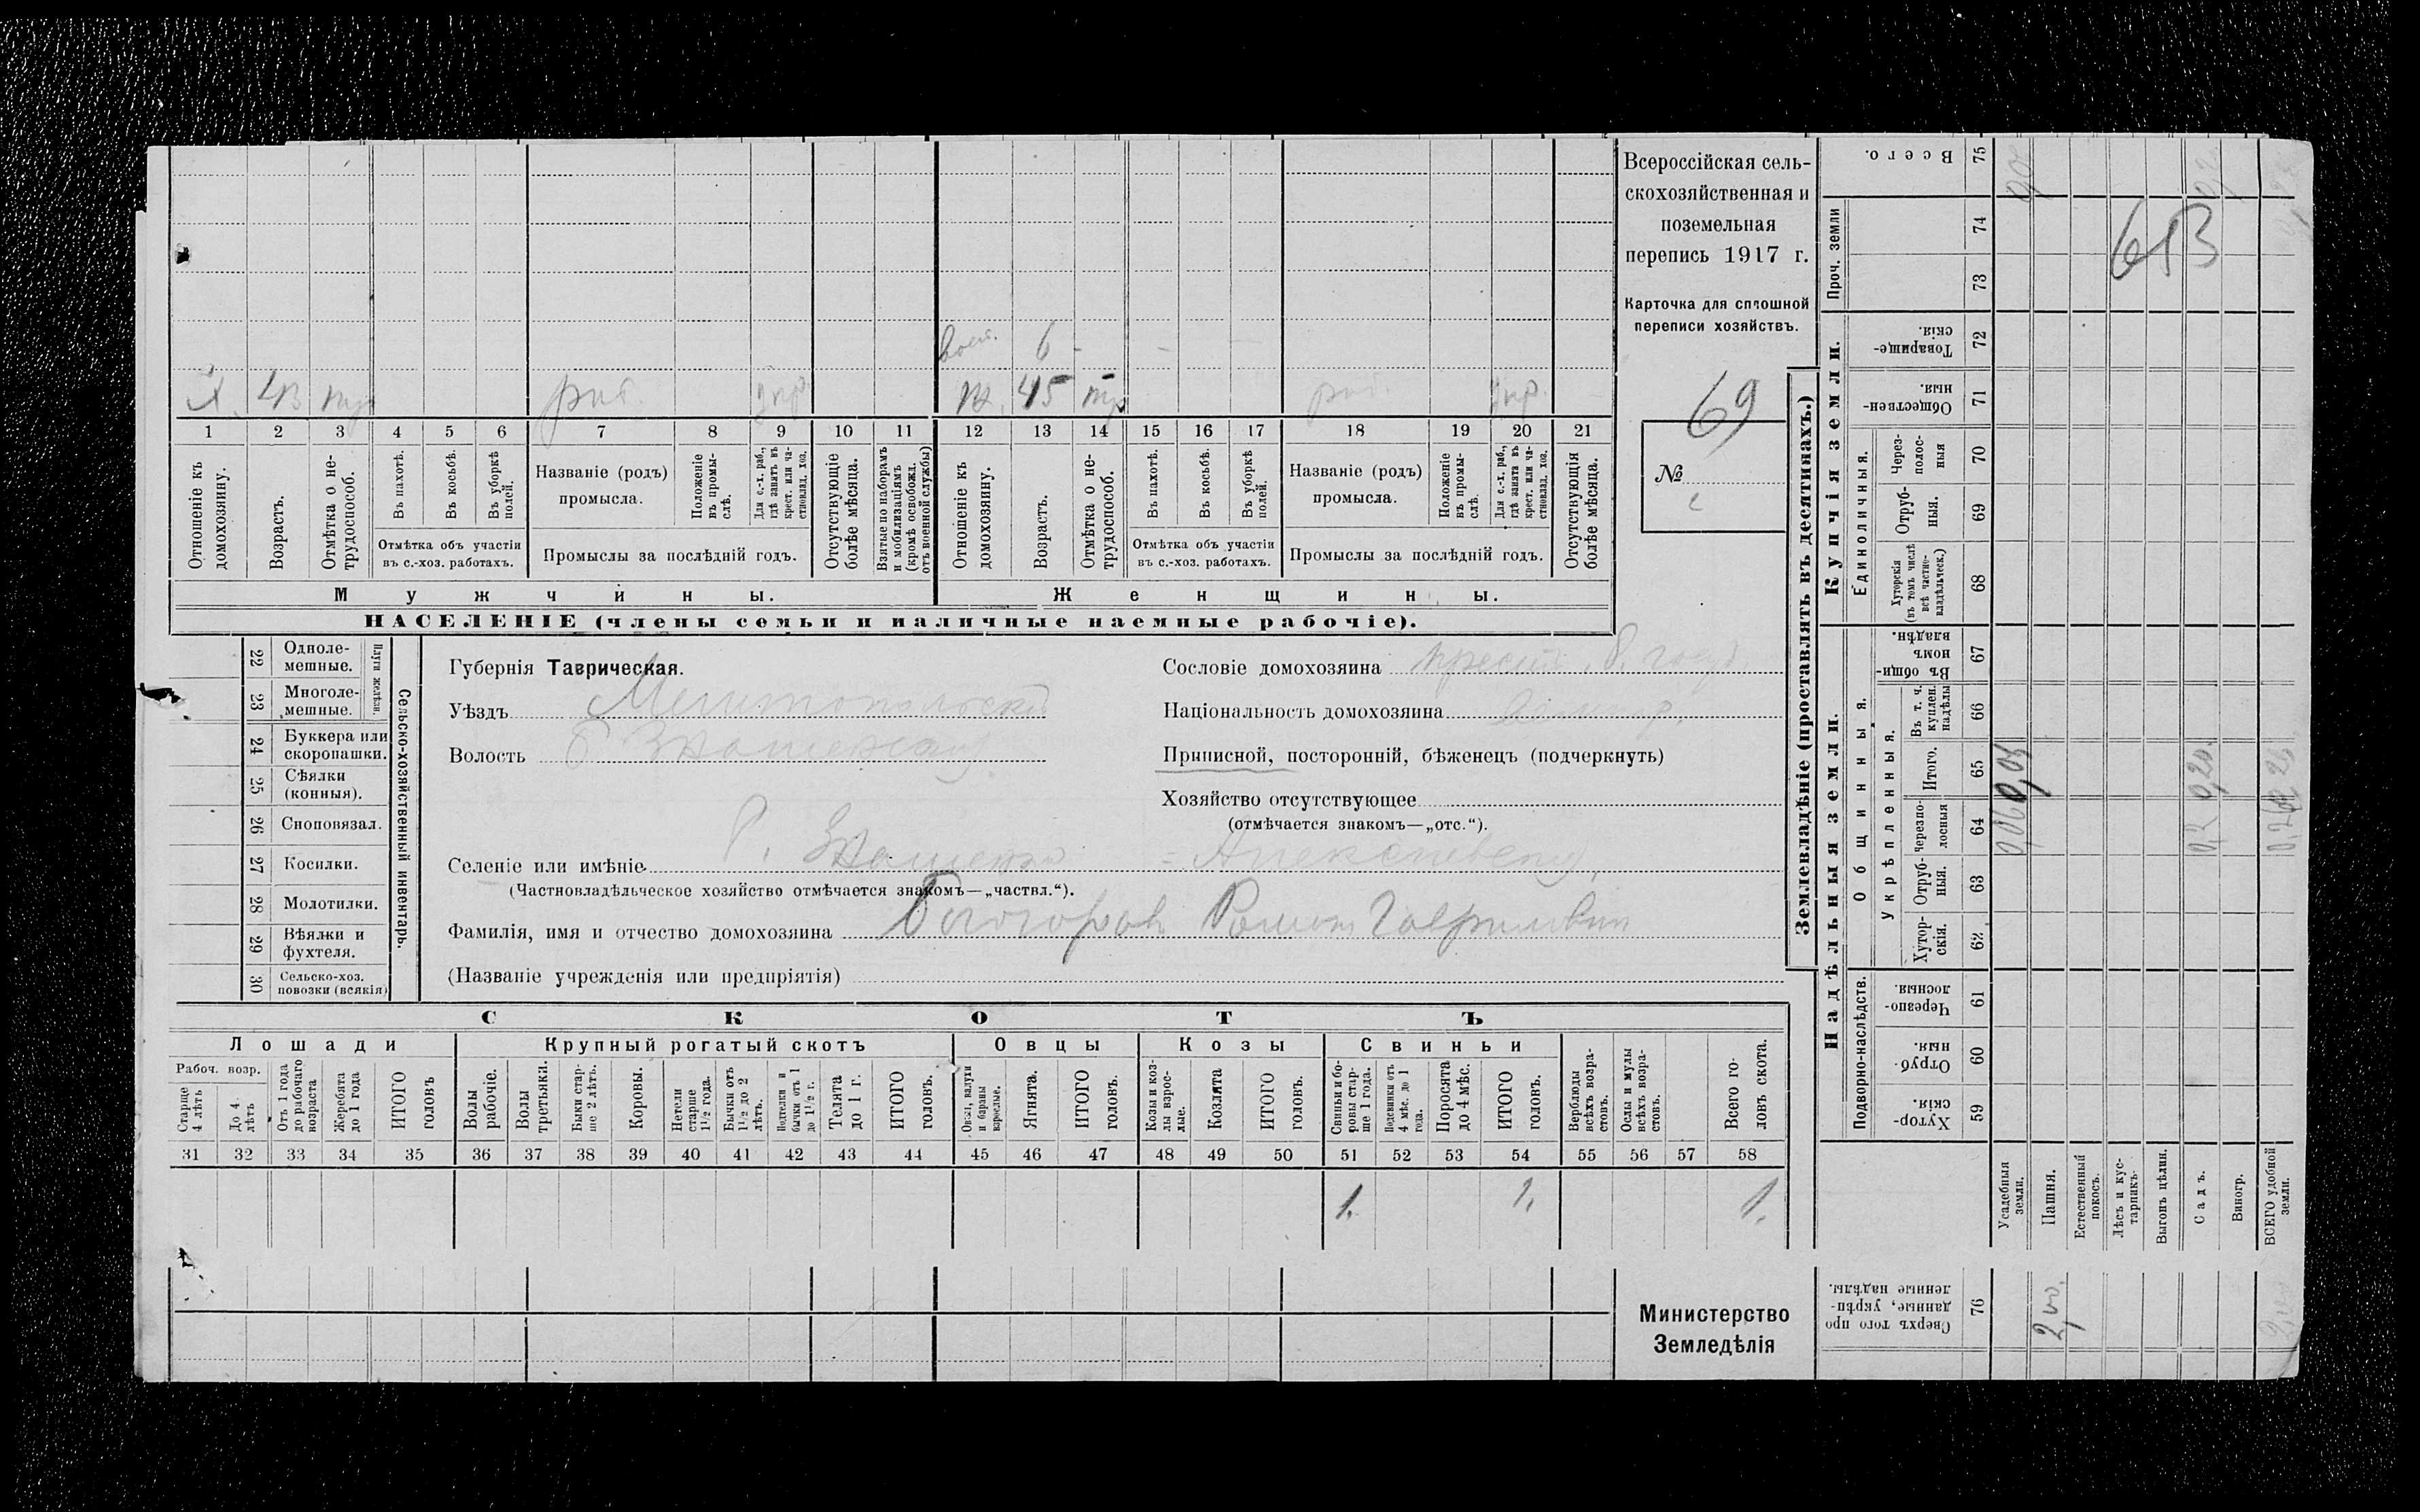 Всероссійская сель-
скохозяйственная и
поземельная
перепись 1917 г.
Карточка для сплошной
переписи хозяйствъ.
69
№
613
вост. 6 - - -
х. 43 тр
ж. 45 тр
1 2 3 4 5 6 7 8 9 10 11 12 13 14 15 16 17 18 19 20 21
Отношеніе къ домохозяину.
Возрастъ.
Отмѣтка о не-трудоспособ.
Въ пахотѣ.
Въ косьбѣ.
Въ уборкѣ полей.
Отмѣтка объ участіи
въ с.-хоз. работахъ.
Названіе (родъ)
промысла.
Положеніе въ промы-слѣ.
Для с.-х. раб., гдѣ занятъ въ крест. или ча-стновлад. хоз.
Промыслы за послѣдній годъ.
Отсутствующіе болѣе мѣсяца.
Взятые по наборамъ и мобилизаціямъ (кромѣ освобожд. отъ военной службы)
Отношеніе къ домохозяину.
Возрастъ.
Отмѣтка о не-трудоспособ.
Въ пахотѣ.
Въ косьбѣ.
Въ уборкѣ полей.
Отмѣтка объ участіи
въ с.-хоз. работахъ.
Названіе (родъ)
промысла.
Положеніе въ промы-слѣ.
Для с.-х. раб., гдѣ занята въ крест. или ча-стновлад. хоз.
Промыслы за послѣдній годъ.
Отсутствующія болѣе мѣсяца.
Мужчины.
Женщины.
НАСЕЛЕНІЕ (члены семьи и наличные наемные рабочіе).
22 Одноле-мешные.
23 Многоле-мешные.
Плуги желѣзн.
24 Буккера или скоропашки.
25 Сѣялки (конныя).
26 Сноповязал.
27 Косилки.
28 Молотилки.
29 Вѣялки и фухтеля.
30 Сельско-хоз. повозки (всякія)
Сельско-хозяйственный инвентарь.
Губернія Таврическая.
Уѣздъ Мелитопольскій
Волость Б Знаменская
Селеніе или имѣніе Б. Знаменка - Алексеевску
(Частновладѣльческое хозяйство отмѣчается знакомъ—„частвл.“).
Фамилія, имя и отчество домохозяина Роман Гаврилович
(Названіе учрежденія или предпріятія)
Сословіе домохозяина крест.
Національность домохозяина
Приписной, посторонній, бѣженецъ (подчеркнуть)
Хозяйство отсутствующее
(отмѣчается знакомъ—„отс.“).
СКОТЪ
Лошади
Крупный рогатый скотъ
Овцы
Козы
Свиньи
Рабоч. возр.
Старше 4 лѣтъ
До 4 лѣтъ
Отъ 1 года до рабочаго возраста
Жеребята до 1 года
ИТОГО головъ
Волы рабочіе.
Волы третьяки.
Быки стар-ше 2 лѣтъ.
Коровы.
Нетели старше 1½ года.
Бычки отъ 1½ до 2 лѣтъ.
Нетелки и бычки отъ 1 до 1½ г.
Телята до 1 г.
ИТОГО головъ.
Овцы, валухи и бараны взрослые.
Ягнята.
ИТОГО головъ.
Козы и коз-лы взрос-лые.
Козлята
ИТОГО головъ.
Свиньи и бо-ровы стар-ше 1 года.
Подсвинки отъ 4 мѣс. до 1 года.
Поросята до 4 мѣс.
ИТОГО головъ.
Верблюды всѣхъ возра-стовъ.
Ослы и мулы всѣхъ возра-стовъ.
Всего го-ловъ скота.
31 32 33 34 35 36 37 38 39 40 41 42 43 44 45 46 47 48 49 50 51 52 53 54 55 56 57 58
1. 1. 1.
Министерство
Земледѣлія
Землевладѣніе (проставлять въ десятинахъ.)
Купчія земли.
Надѣльныя земли.
Всего. 75
Проч. земли 74
73
Товарище-скія. 72
Обществен-ныя. 71
Единоличныя.
Через-полос-ныя 70
Отруб-ныя. 69
Хуторскія (въ томъ числѣ всѣ частно-владѣльческ.) 68
Общинныя.
Въ общин-номъ владѣн. 67
Укрѣпленныя.
Въ т. ч. куплен. надѣлы 66
Итого. 65
Черезпо-лосныя 64
Отруб-ныя. 63
Хутор-скія. 62
Подворно-наслѣдств.
Черезпо-лосныя. 61
Отруб-ныя. 60
Хутор-скія. 59
Усадебныя земли.
Пашня.
Естественный покосъ.
Лѣсъ и кус-тарникъ.
Выгонъ цѣлин.
Садъ.
Виногр.
ВСЕГО удобной земли.
Сверхъ того про-данные, укрѣп-ленные надѣлы. 76
0,06
0,2 0,20.
2,00.